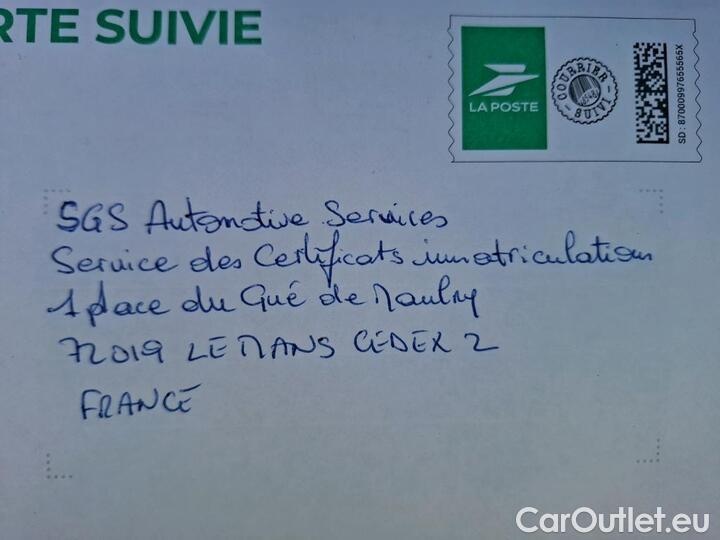 RTE SUIVIE
LA POSTE
COURRIER SUIVI
SD : 870009976555565X
SGS Automotive Services
Service des Certificats immatriculation
1 place du Gué de Maulny
72019 LE MANS CEDEX 2
FRANCE
CarOutlet.eu